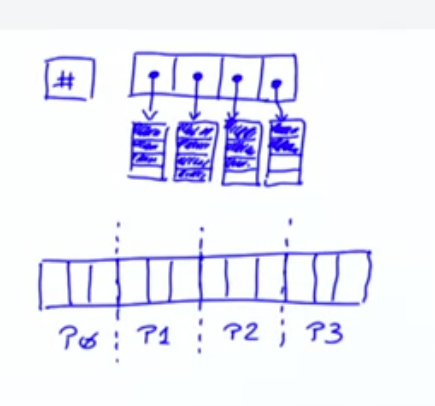 #
Pø P1 P2 P3